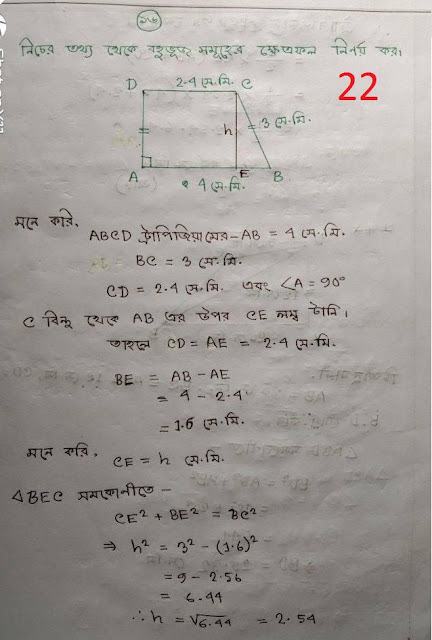 ২৬
নিচের তথ্য থেকে বহুভুজ সমূহের ক্ষেত্রফল নির্ণয় কর।
22
D 2.4 সে.মি. C
h = 3 সে.মি.
A E B
4 সে.মি.
মনে করি,
ABCD ট্রাপিজিয়ামের - AB = 4 সে.মি.
BC = 3 সে.মি.
CD = 2.4 সে.মি. এবং ∠A = 90°
C বিন্দু থেকে AB এর উপর CE লম্ব টানি।
তাহলে CD = AE = 2.4 সে.মি.
BE = AB - AE
= 4 - 2.4
= 1.6 সে.মি.
মনে করি, CE = h সে.মি.
△BEC সমকোনীতে -
CE² + BE² = BC²
⇒ h² = 3² - (1.6)²
= 9 - 2.56
= 6.44
∴ h = √6.44 = 2.54